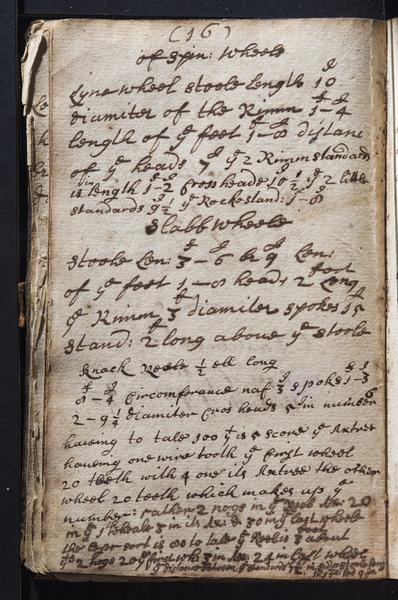 (16)
of spin: wheels
Lyne wheel stoole length 10
diamiter of the Rimm 1-4
length of ye feet 1-8 distanc
of ye heads 7 ye 2 Rimm standards
is length 1-2 Cross heads 10 ½ ye 2 little
standards 9 ½ ye Rockstand: 1-8
Slabb wheele
stoole Len: 3-6 br 9 Len:
of ye feet 1-8 heads 2 foot Long
ye Rimm 3 diamiter spokes 15
stand: 2 long above ye stoole
Knack Reele ½ ell long
8-4 circomferance naf 3 spoks 1-3
2-9 ¼ diamiter Cros heads 5 in number 6
haveing to tale 100 yt is 5 score ye Axtree
haveing one wire tooth ye first wheel
20 teeth with 4 one its Axtree the other
wheel 20 teeth which makes up ye
number: 2 nogs in ye 20
in ye 3 in its Ax: & 30 in ye last wheele
sort is to tale ye Reele is 3 about
2 nogs 20 ye first whe 3 in Ax: 24 in last wheel
ye distance between ye standards